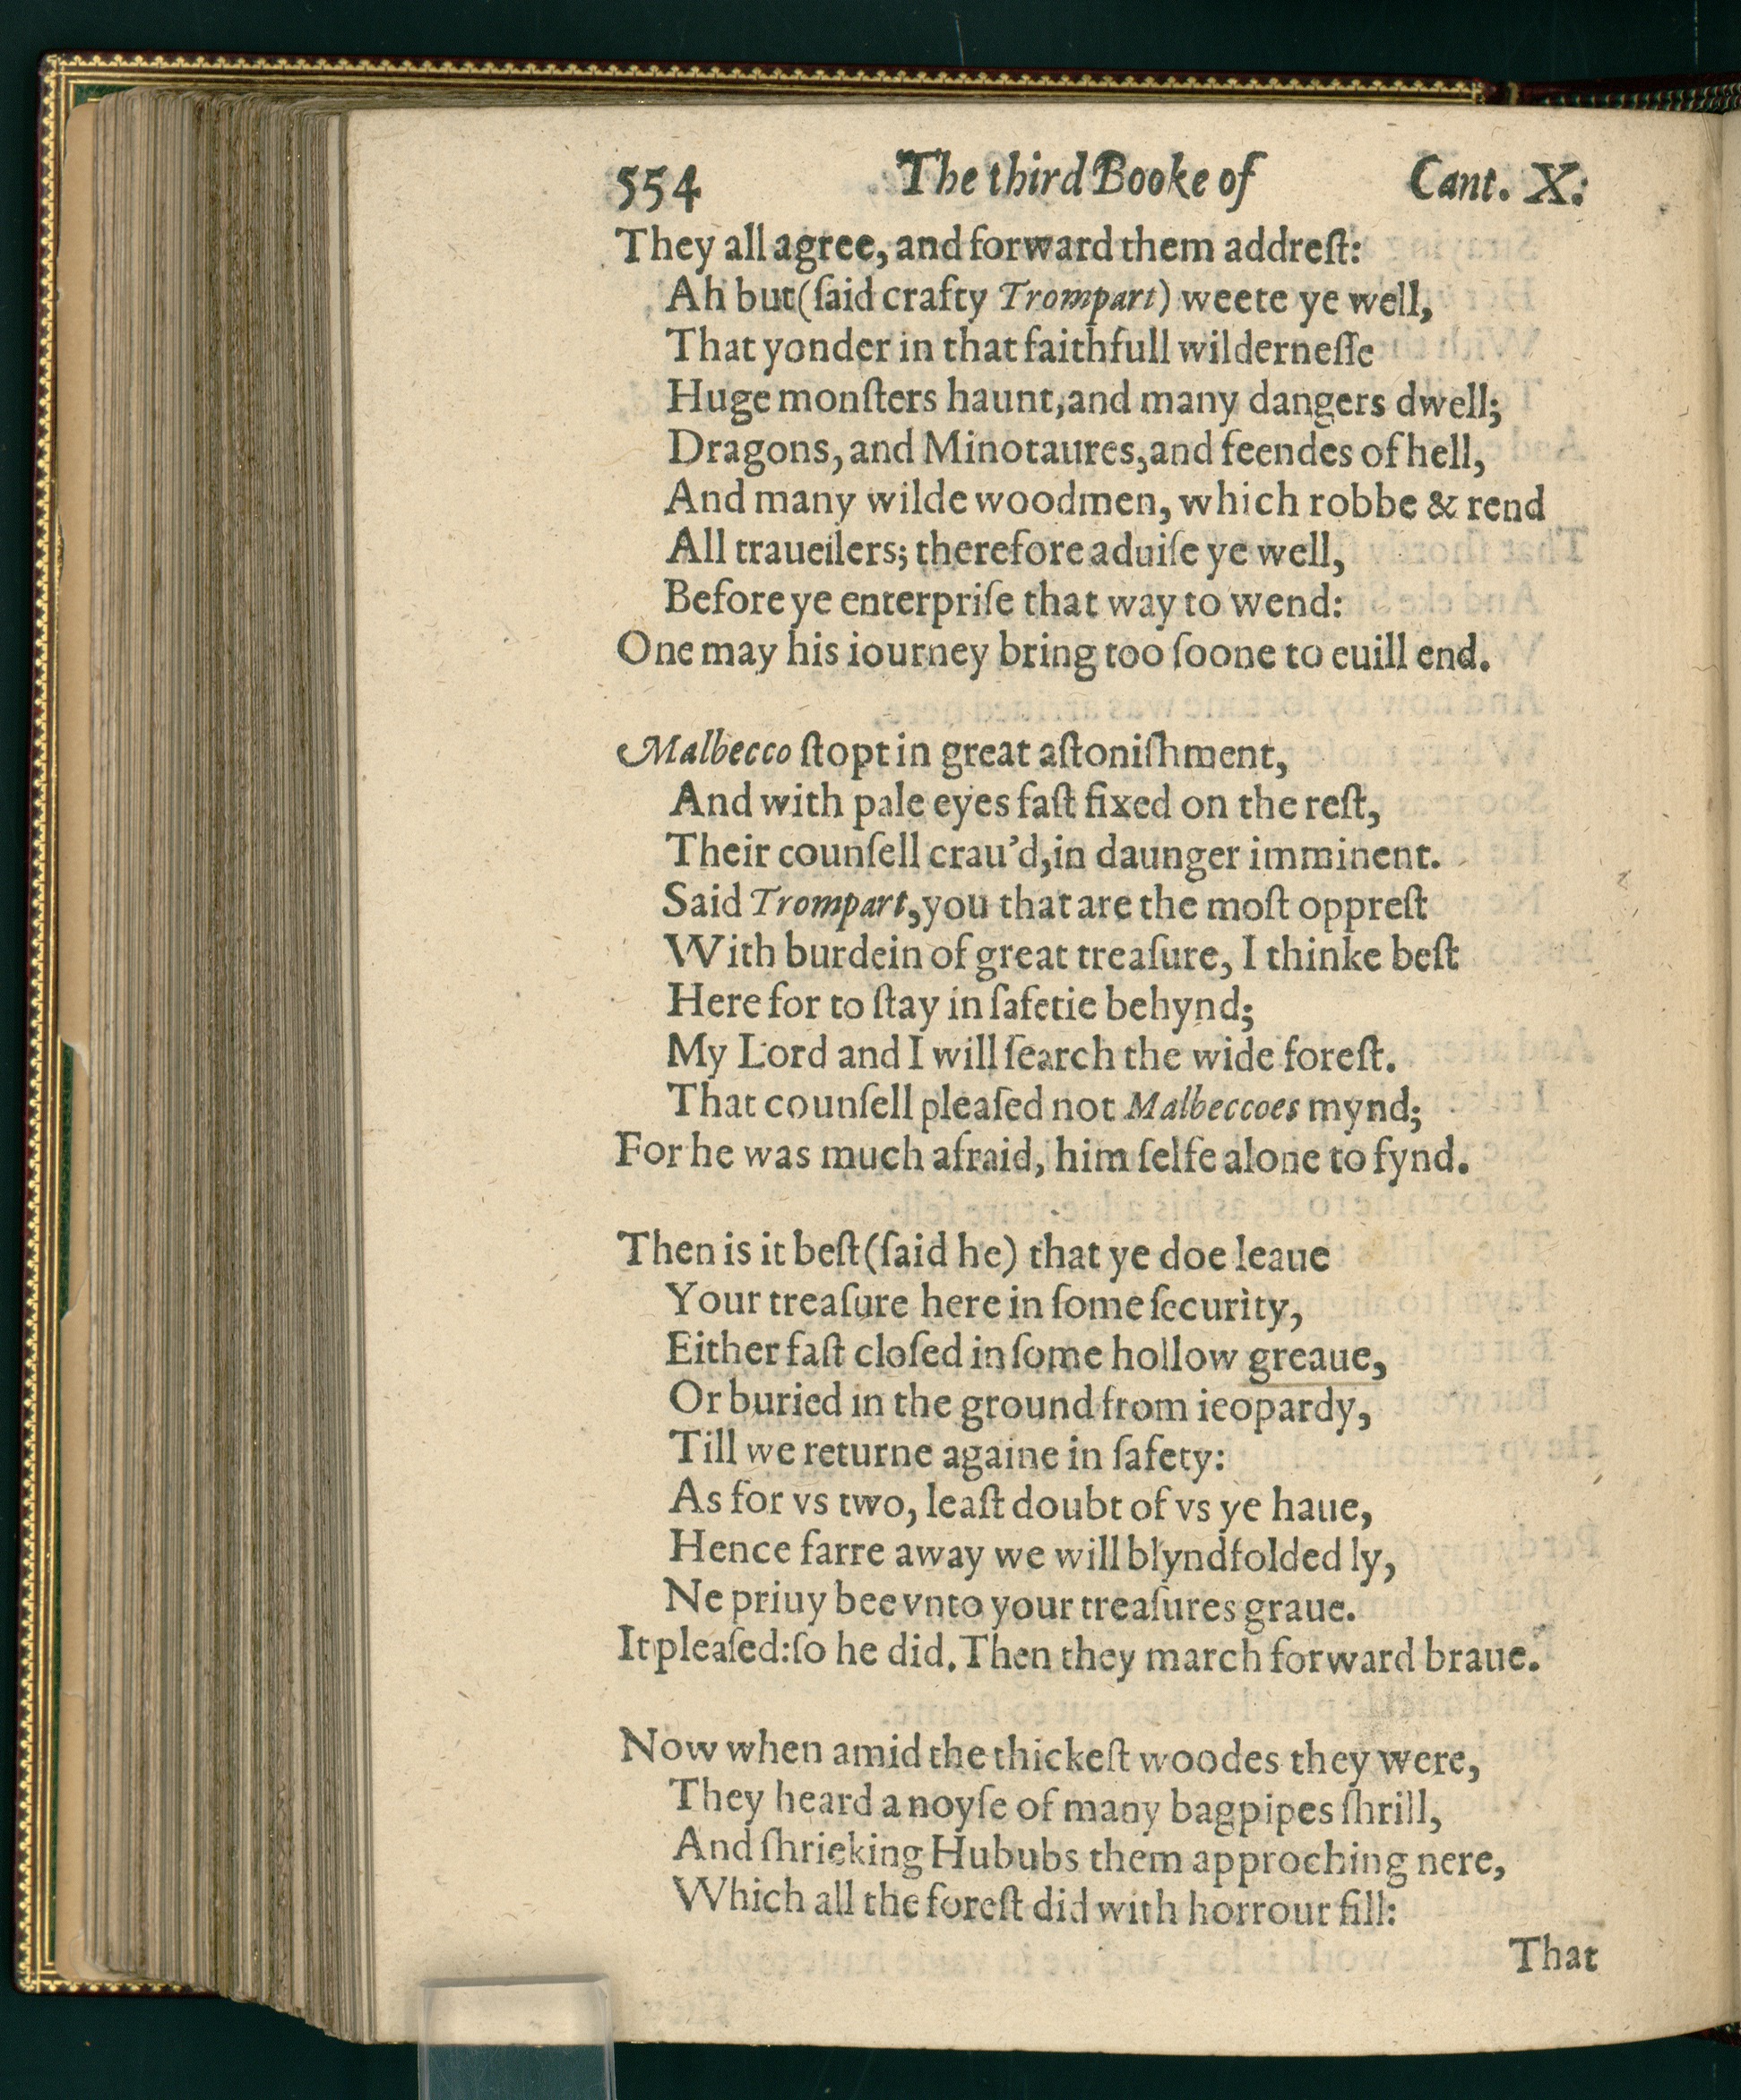 554 The third Booke of Cant. X.
They all agree, and forward them addreſt:
Ah but (ſaid crafty Trompart) weete ye well,
That yonder in that faithfull wilderneſſe
Huge monſters haunt, and many dangers dwell;
Dragons, and Minotaures, and feendes of hell,
And many wilde woodmen, which robbe & rend
All traueilers; therefore aduiſe ye well,
Before ye enterpriſe that way to wend:
One may his iourney bring too ſoone to euill end.
Malbecco ſtopt in great aſtoniſhment,
And with pale eyes faſt fixed on the reſt,
Their counſell crau'd, in daunger imminent.
Said Trompart, you that are the moſt oppreſt
With burdein of great treaſure, I thinke beſt
Here for to ſtay in ſafetie behynd;
My Lord and I will ſearch the wide foreſt.
That counſell pleaſed not Malbeccoes mynd;
For he was much afraid, him ſelfe alone to fynd.
Then is it beſt (ſaid he) that ye doe leaue
Your treaſure here in ſome ſecurity,
Either faſt cloſed in ſome hollow greaue,
Or buried in the ground from ieopardy,
Till we returne againe in ſafety:
As for vs two, leaſt doubt of vs ye haue,
Hence farre away we will blyndfolded ly,
Ne priuy bee vnto your treaſures graue.
It pleaſed: ſo he did. Then they march forward braue.
Now when amid the thickeſt woodes they were,
They heard a noyſe of many bagpipes ſhrill,
And ſhrieking Hububs them approching nere,
Which all the foreſt did with horrour fill:
That